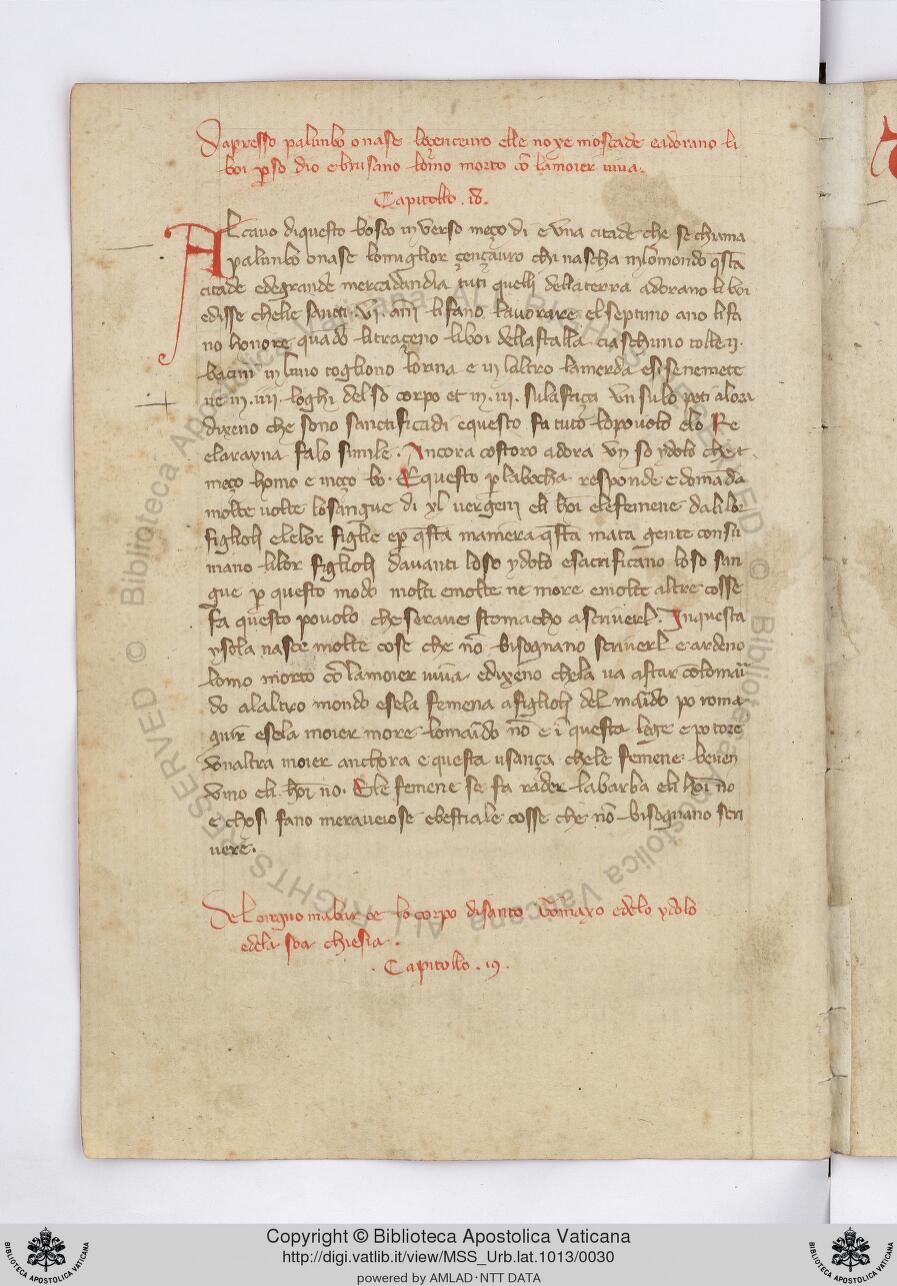 Dapresso palunbo o nase lo çençeuro elle noxe moscade e adorano li
boi p so dio e brusano lomo morto cō la moier viva.
Capitollo .18.
Al cavo di questo bosco in verso meço di e vna citade che se chiama
palunbo o nase lo miglior çençauro chi nascha in lo mondo q̄sta
citade e de grande mercadandia tuti quelli della terra adorano li boi
e disse che lie sancti .vi. anni li fano lavorare el septimo ano li fa
no honore quādo li trageno li boi della stalla ciaschuno tolle .ij.
bacini in luno togliono lorina e in laltro la merda e si se ne mete
ve in .iiii. loghi del so corpo et in .iii. su la faça un sulo peti alora
dixeno che sono sanctificadi e questo fa tuto lo povolo e lo Re
e la rayna fa lo simile. Ancora costoro adora vn so ydolo che e
meço homo e meço bo. E questo p la bocha responde e domāda
molte volte lo sangue di xl vergeni eli hoī e le femene da li lor
figlioli e le lor figlie e p q̄sta maniera q̄sta mata gente consu
mano li lor figlioli davanti lo so ydolo e sacrificano lo so san
gue p questo modo molti e molte ne more e molte altre cosse
fa questo povolo che serave stomacho a scriverl. In questa
ysola nasce molte cose che nō bisognano scriverl e ardeno
lomo morto cō la moier viva e dixeno che la va a star co lo mari
do a laltro mondo e se la femena a figlioli del marido po roma
gnir e se la moier more lo marido nō e ī questa lege e po tore
vnaltra moier anchora e questa usança che le femene beven
vino e li hoī no. E le femene se fa rader la barba e li hoī no
e chosi fano meraveiose e bestiale cosse che nō bisognano scri
vere.
Del regno mabar oe lo corpo di santo Tomaxo e de lo ydolo
e de la soa chiesia.
.Capitollo .19.
RIGHTS RESERVED © Biblioteca Apostolica Vaticana ALL RIGHTS RESERVED © Biblioteca Apostolica Vaticana ALL
BIBLIOTECA APOSTOLICA VATICANA
Copyright © Biblioteca Apostolica Vaticana
http://digi.vatlib.it/view/MSS_Urb.lat.1013/0030
powered by AMLAD·NTT DATA
BIBLIOTECA APOSTOLICA VATICANA